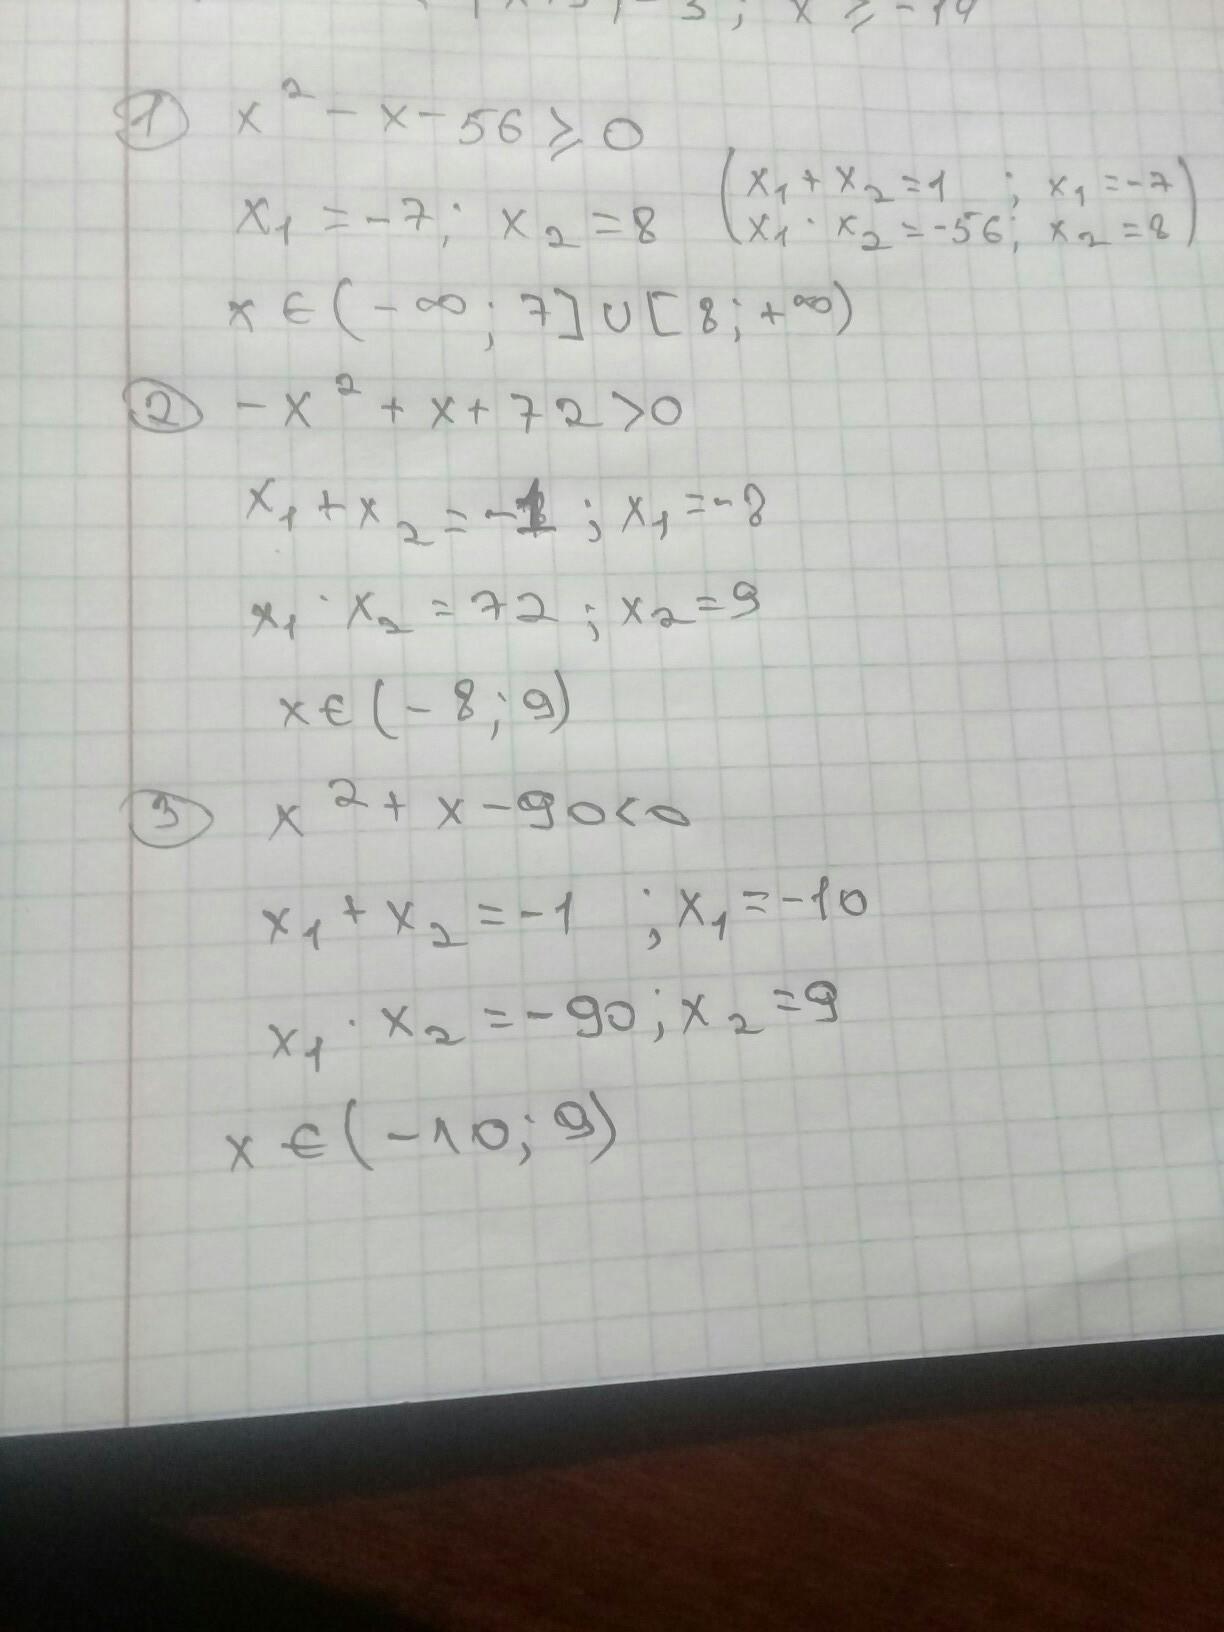 ; x ≥ -14
1 x² - x - 56 ≥ 0
x₁ = -7; x₂ = 8 (x₁ + x₂ = 1 ; x₁ = -7
x₁ · x₂ = -56; x₂ = 8)
x ∈ (-∞; 7] ∪ [8; +∞)
2 -x² + x + 72 > 0
x₁ + x₂ = -1 ; x₁ = -8
x₁ · x₂ = 72 ; x₂ = 9
x ∈ (-8; 9)
3 x² + x - 90 < 0
x₁ + x₂ = -1 ; x₁ = -10
x₁ · x₂ = -90; x₂ = 9
x ∈ (-10; 9)